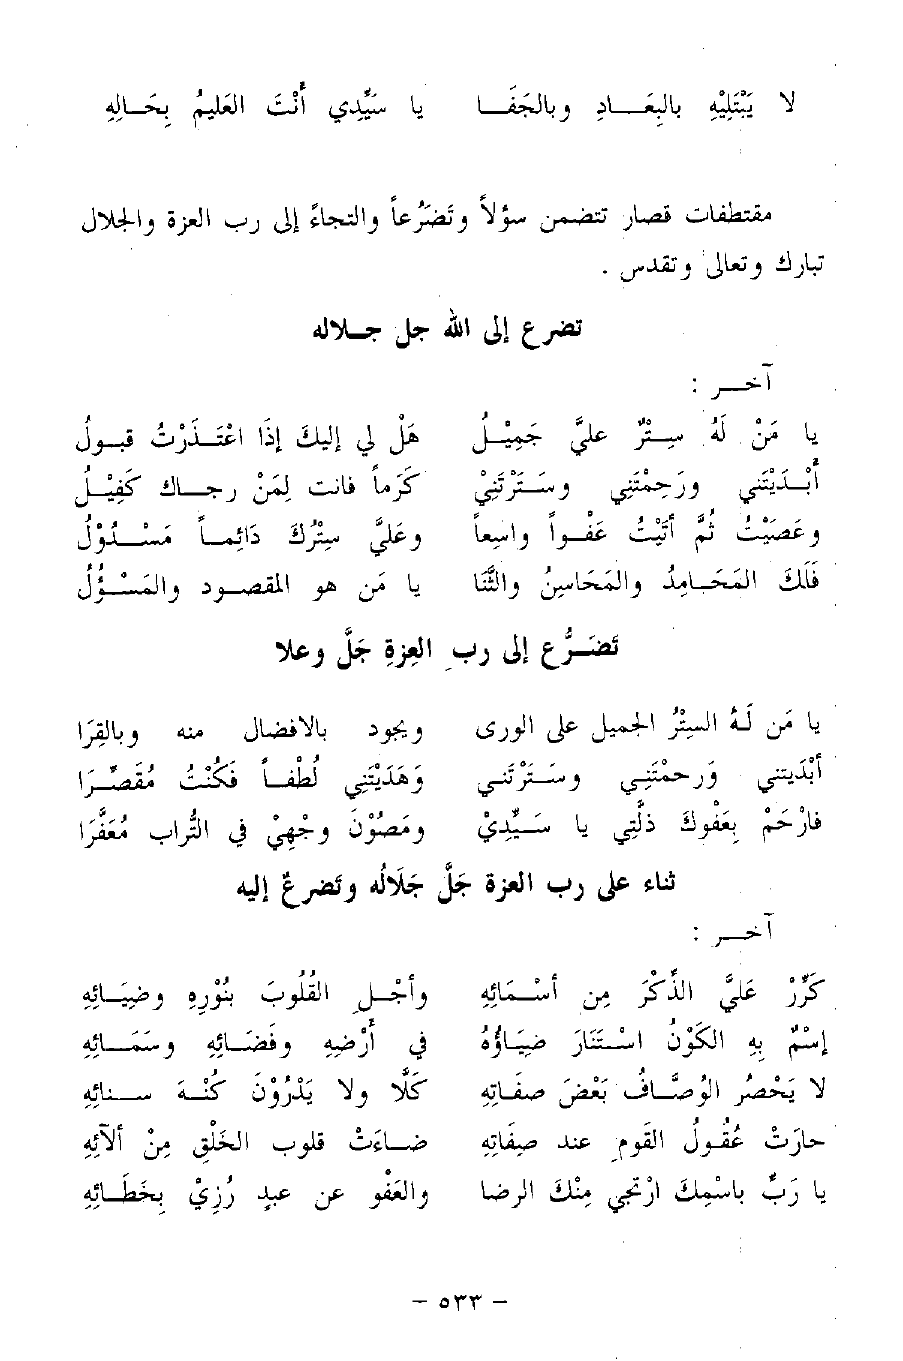 لا يَبْتَلِيْهِ بالبِعَـــادِ وبالجَفَـــا يا سَيِّدي أَنْتَ العَليمُ بِحَــالِهِ
مقتطفات قصار تتضمن سؤلاً وتَضَرُّعاً والتجاءً إلى رب العزة والجلال
تبارك وتعالى وتقدس .
تضرع إلى الله جل جـــلاله
آخـــر :
يا مَنْ لَهُ سِــتْرٌ عليَّ جَمِيْــلُ هَلْ لي إليكَ إذَا اعْتَــذَرْتُ قبــولُ
أَبْــدَيْتَني ورَحِمْتَني وسَــتَرْتَنِيْ كَرَماً فانت لِمَنْ رجــاك كَفِيْــلُ
وعَصَيْتُ ثُمَّ أَتَيْتُ عَفْــواً واسِعاً وعَليَّ سِتْرُكَ دَائِمــاً مَسْــدُوْلُ
فَلَكَ المَحَــامِدُ والمَحَاسِنُ والثَّنَا يا مَن هو المقصــود والمَسْــؤُلُ
تَضَــرُّع إلى رب العِزةِ جَلَّ وعلا
يا مَن لَـهُ السِتْرُ الجميل على الورى ويجود بالافضال منه وبالقِرَا
أَبْدَيتني وَرحمْتَــني وسَــتَرْتَني وَهَدَيْتَني لُطْفــاً فَكُنْتُ مُقَصِّــرَا
فارْحَمْ بِعَفْوكَ ذلَّتي يا سَــيِّدِيْ ومَصُوْنَ وجْهِيْ في التُّراب مُعَفَّرَا
ثناء على رب العزة جَلَّ جَلَالُه وتَضرعٌ إليه
آخـــر :
كَرِّرْ عَليَّ الذِّكْرَ مِن أسْــمَائِهِ وأجْــلِ القُلُوبَ بنُوْرِهِ وضِيَــائِهِ
إسْمٌ بِهِ الكَوْنُ اسْــتَنَارَ ضِيَاؤُهُ في أَرْضِهِ وفَضَــائِهِ وسَمَــائِهِ
لا يَحْصُرُ الوُصَّــافُ بَعْضَ صِفَاتِهِ كَلَّا ولا يَدْرُوْنَ كُنْــهَ ســنائِهِ
حارَتْ عُقُــولُ القَومِ عند صِفَاتِهِ ضــاءَتْ قلوب الخَلْقِ مِنْ آلائِهِ
يا رَبِّ باسْمِكَ ارْتجي مِنْكَ الرضا والعَفْو عن عبدٍ رُزِيْ بِخَطَــائِهِ
- ٥٣٣ -